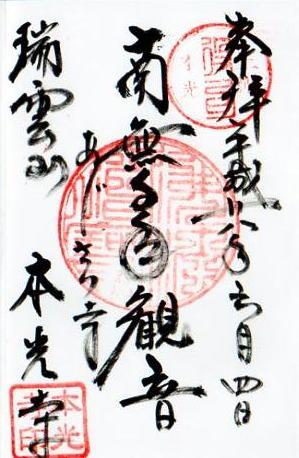 奉拝 平成十八年六月四日
南無千手観音
あじさゐ寺
瑞雲山 本光寺
本光
寺印